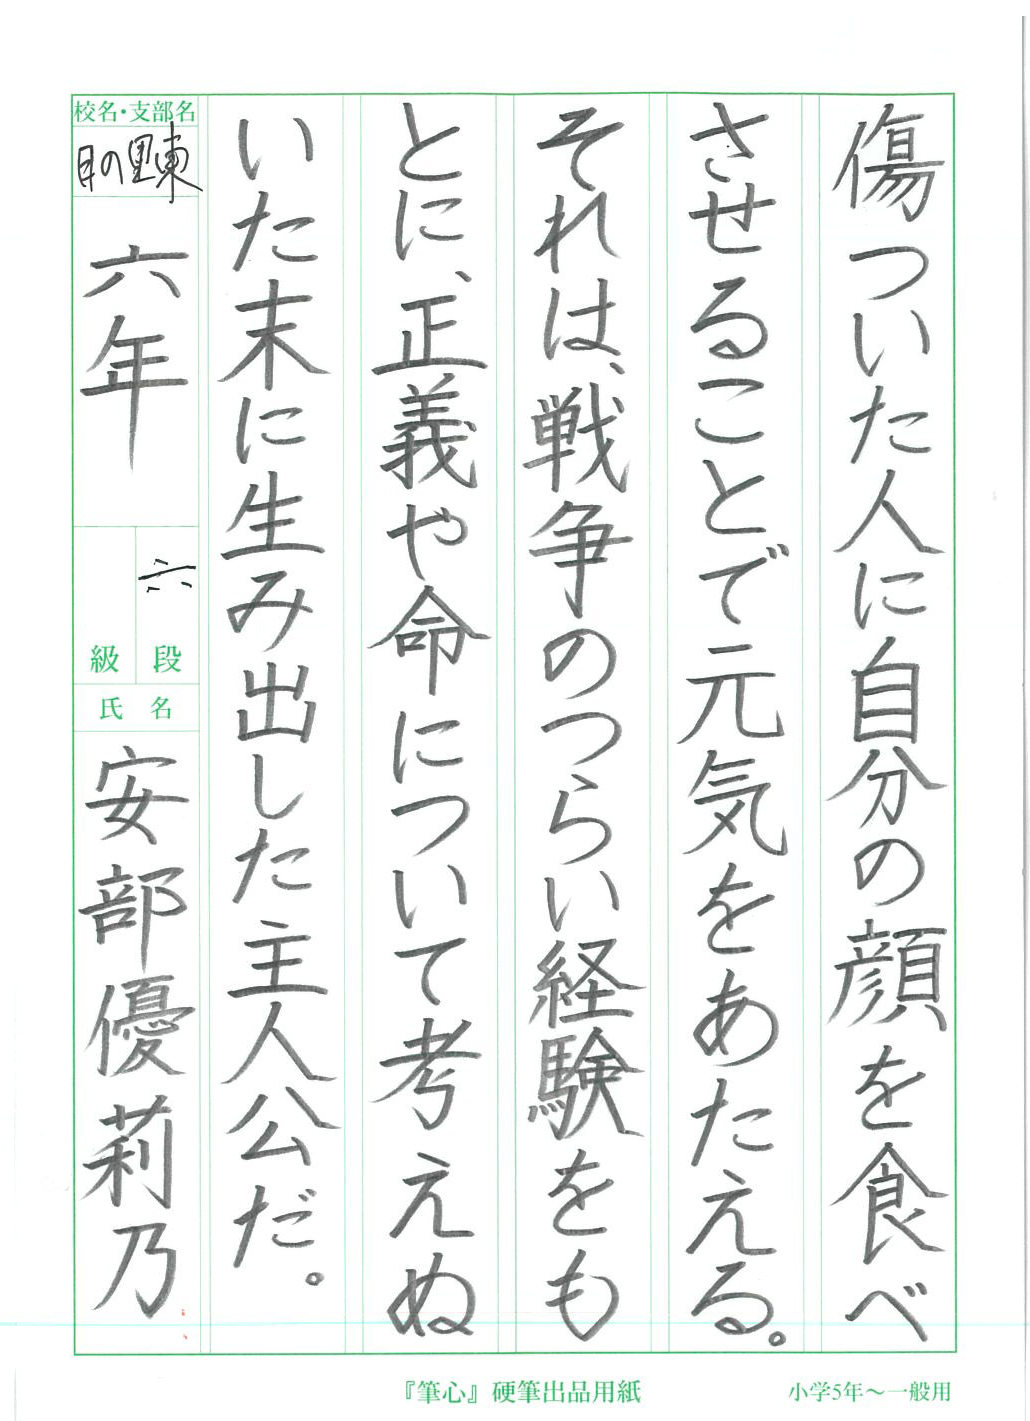 傷ついた人に自分の顔を食べ
させることで元気をあたえる。
それは、戦争のつらい経験をも
とに、正義や命について考えぬ
いた末に生み出した主人公だ。
校名・支部名
六年
六
級 段
氏名
安部優莉乃
『筆心』硬筆出品用紙
小学5年〜一般用